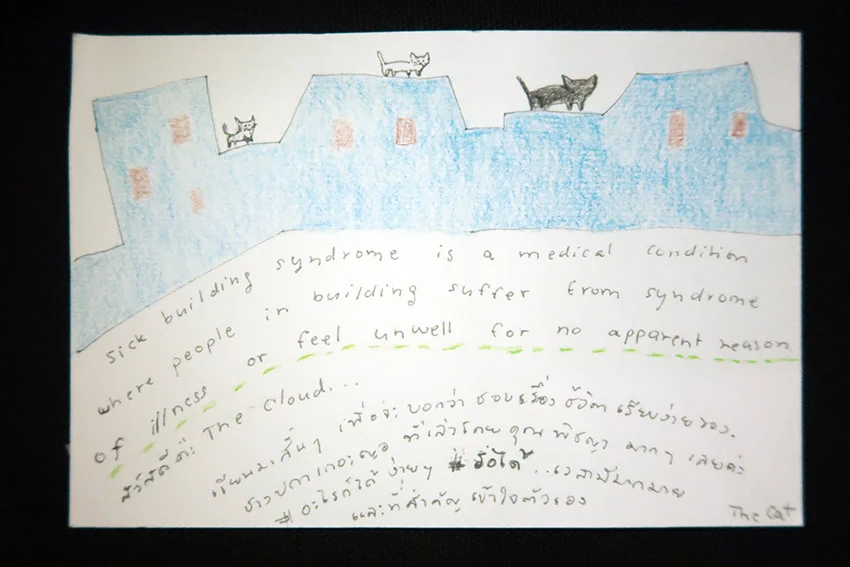 Sick building syndrome is a medical condition
where people in building suffer from syndrome
of illness or feel unwell for no apparent reason
สวัสดีค่ะ The Cloud...
เขียนมาสั้นๆ เพื่อจะบอกว่า ชอบเรื่อง ชีวิตเรียบง่ายของ
ชาวปกาเกอะญอ ที่เล่าโดย คุณพิชญา มากๆ เลยค่ะ
# อะไรก็ได้ ง่ายๆ # รอได้ ..เวลามีมากมาย
และที่สำคัญ เข้าใจตัวเอง
The Cat